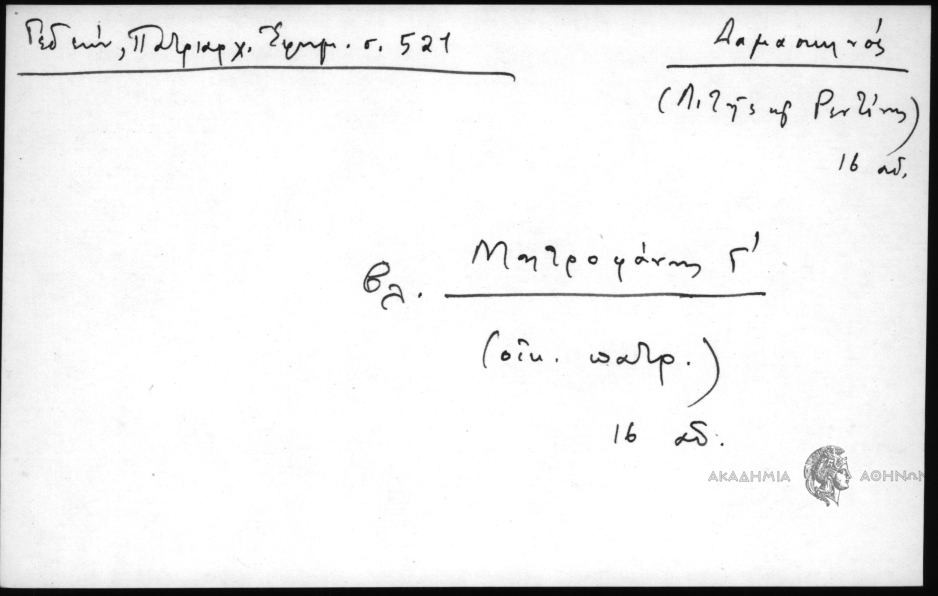 Γεδεών, Πατριαρχ. Ἐφημ. σ. 521
Δαμασκηνός
(Λιτῆς κ Ρεντίνης)
16 αἰ.
βλ. Μητροφάνης Γ'
(οἰκ. πατρ.)
16 αἰ.
ΑΚΑΔΗΜΙΑ ΑΘΗΝΩΝ